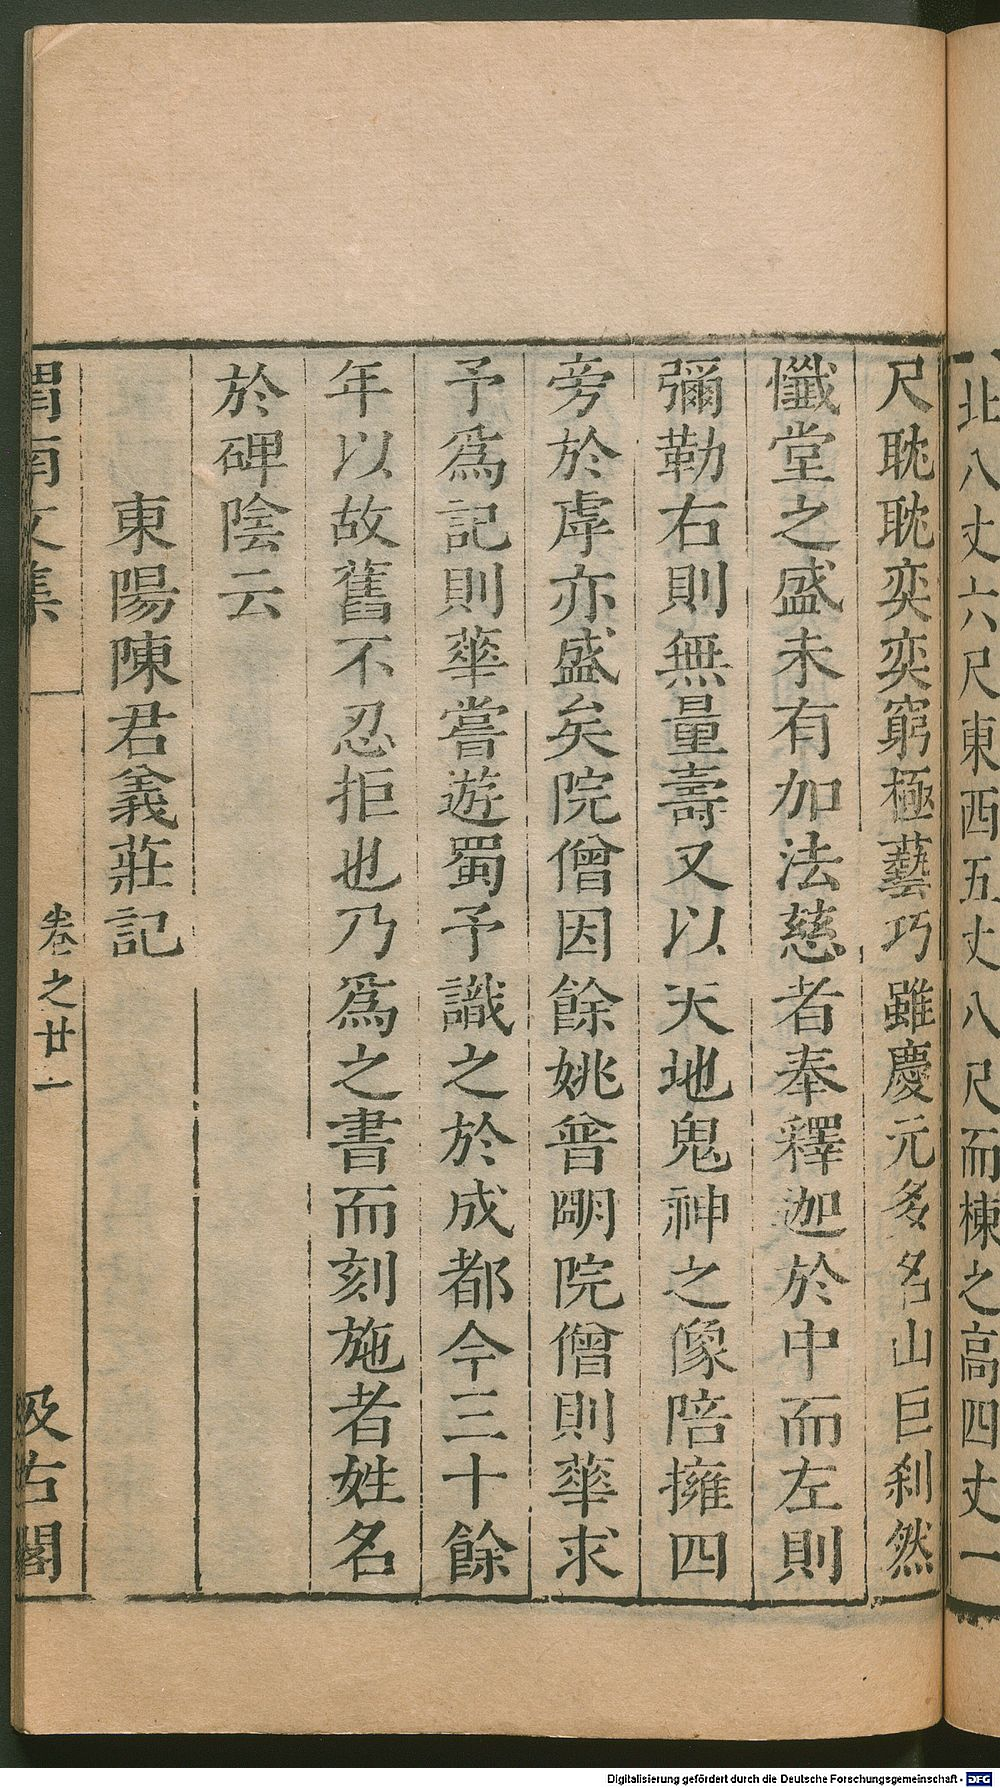 北八丈六尺東西五丈八尺而棟之高四丈一
尺耽耽奕奕窮極藝巧雖慶元多名山巨刹然
懺堂之盛未有加法慈者奉釋迦於中而左則
彌勒右則無量壽又以天地鬼神之像陪擁四
旁於虖亦盛矣院僧因餘姚普朙院僧則華求
予爲記則華嘗遊蜀予識之於成都今三十餘
年以故舊不忍拒也乃爲之書而刻施者姓名
於碑陰云
東陽陳君義莊記
渭南文集 卷之廿一 汲古閣
Digitalisierung gefördert durch die Deutsche Forschungsgemeinschaft - DFG